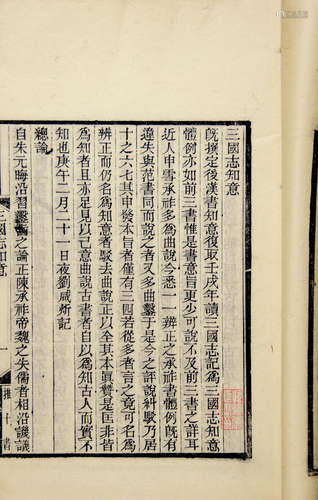 三國志知意
旣撰定後漢書知意復取壬戌年讀三國志記爲三國志知意
體例亦如前三書惟是書意旨更少可說不及前三書之詳耳
近人申雪承祚多爲曲說今悉一一辨正之承祚書體例旣有
違失與范書同而說之者又多曲鑿于是今之詳說糾駁乃居
十之六七其申發本旨者僅有三四若從多者言之竟可名爲
辨正而仍名知意者駁去曲說正以全其本眞贊是匡非皆
爲知者且亦足見以己意曲說古書者自以爲知古人而實不
知也庚午二月二十一日夜劉咸炘記
總論
自朱元晦沿習鑿齒之論正陳承祚帝魏之失儒者相沿譏議
三國志知意
一
推十書